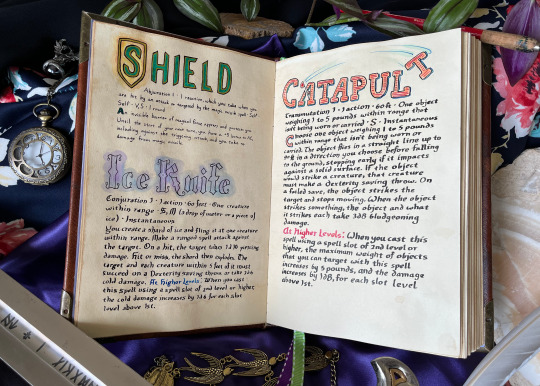 SHIELD
Abjuration 1 · 1 reaction, which you take when
you are hit by an attack or targeted by the magic missile spell · Self
Self · V, S · 1 round
An invisible barrier of magical force appears and protects you.
Until the start of your next turn, you have a +5 bonus to AC,
including against the triggering attack, and you take no
damage from magic missile.
Ice Knife
Conjuration 1 · 1 action · 60 feet · One creature
within range · S, M (a drop of water or a piece of
ice) · Instantaneous
You create a shard of ice and fling it at one creature
within range. Make a ranged spell attack against
the target. On a hit, the target takes 1d10 piercing
damage. Hit or miss, the shard then explodes. The
target and each creature within 5 feet of it must
succeed on a Dexterity saving throw or take 2d6
cold damage. At Higher Levels: When you cast
this spell using a spell slot of 2nd level or higher,
the cold damage increases by 1d6 for each slot
level above 1st.
CATAPULT
Transmutation 1 · 1 action · 60 ft · One object
weighing 1 to 5 pounds within range that
isn't being worn or carried · S · Instantaneous
Choose one object weighing 1 to 5 pounds
within range that isn't being worn or
carried. The object flies in a straight line up to
in a direction you choose before falling
to the ground, stopping early if it impacts
against a solid surface. If the object
would strike a creature, that creature
must make a Dexterity saving throw. On
a failed save, the object strikes the
target and stops moving. When the object
strikes something, the object and what
it strikes each take 3d8 bludgeoning
damage.
At Higher Levels: When you cast this
spell using a spell slot of 2nd level or
higher, the maximum weight of objects
that you can target with this spell
increases by 5 pounds, and the damage
increases by 1d8, for each slot level
above 1st.